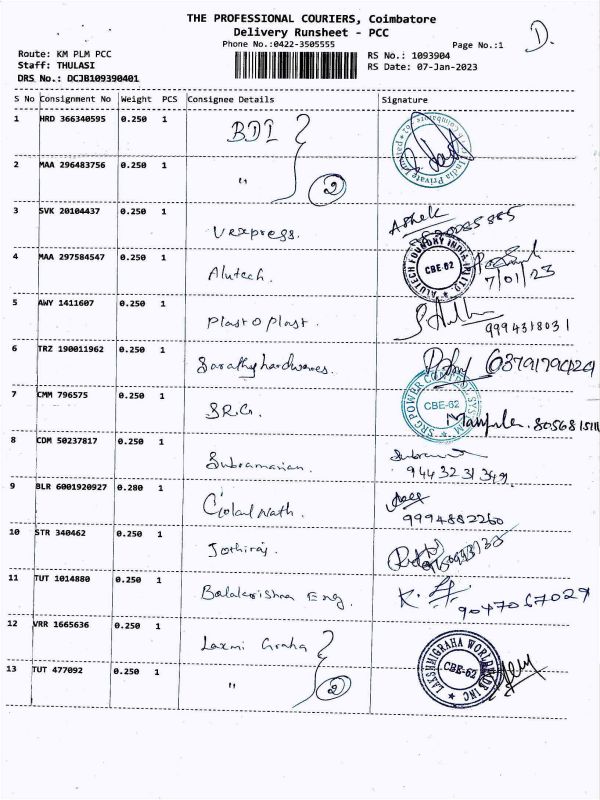 THE PROFESSIONAL COURIERS, Coimbatore
Delivery Runsheet - PCC
Phone No.:0422-3505555
Page No.:1
D.
Route: KM PLM PCC
RS No.: 1093904
Staff: THULASI
RS Date: 07-Jan-2023
DRS No.: DCJB109390401
S No Consignment No Weight PCS Consignee Details Signature
1 HRD 366340595 0.250 1 BDI
2 MAA 296483756 0.250 1 " 2
3 SVK 20104437 0.250 1 Vexpress. Ashok
4 MAA 297584547 0.250 1 Alutech. ALUTECH FOUNDRY INDIA (P) LTD CBE-62 7/01/23
5 AWY 1411607 0.250 1 Plast O Plast. 9994318031
6 TRZ 190011962 0.250 1 Sarathy hardwares.
7 CMM 796575 0.250 1 S.R.G. SRG POWER CONTROL SYSTEM CBE-62
8 CDM 50237817 0.250 1 Subramanian. 9443231349.
9 BLR 6001920927 0.280 1 9994882260
10 STR 340462 0.250 1 Jothiraj.
11 TUT 1014880 0.250 1 Balakrishna Eng. 9047067029
12 VRR 1665636 0.250 1 Laxmi Graha
13 TUT 477092 0.250 1 " 2 CBE-62